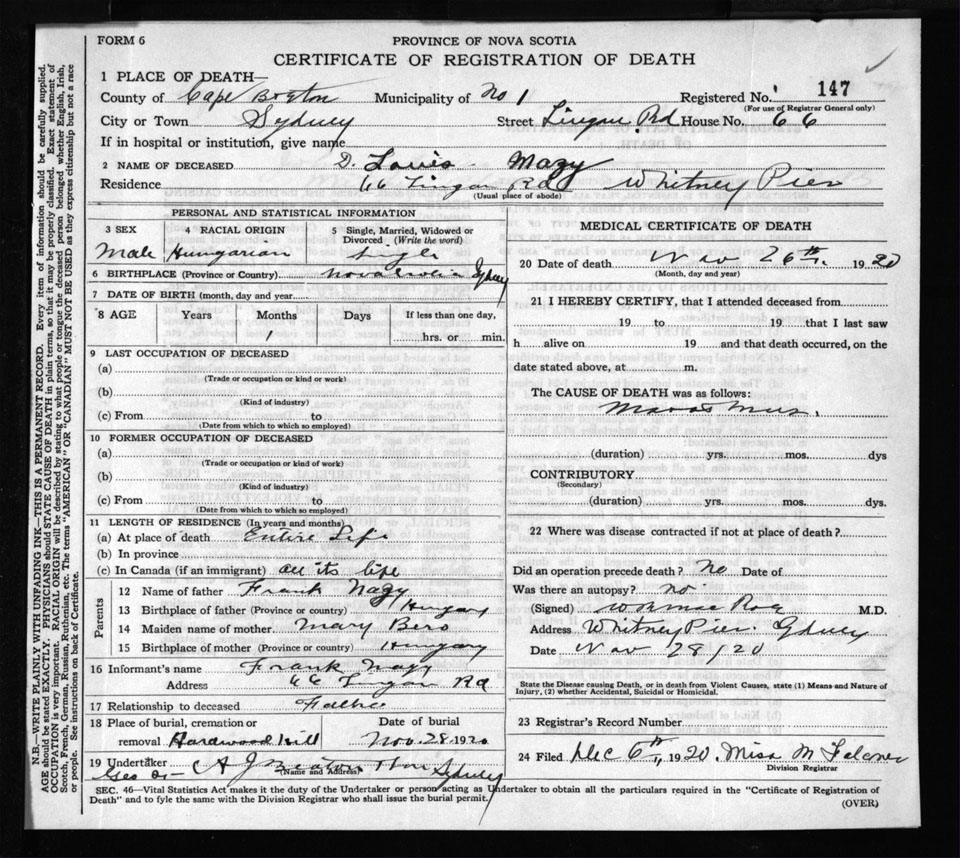 FORM 6
PROVINCE OF NOVA SCOTIA
CERTIFICATE OF REGISTRATION OF DEATH
1 PLACE OF DEATH—
County of Cape Breton Municipality of No 1 Registered No. 147
(For use of Registrar General only)
City or Town Sydney Street Lingan Rd House No. 66
If in hospital or institution, give name
2 NAME OF DECEASED D. Louis Nagy
Residence 66 Lingan Rd Whitney Pier
(Usual place of abode)
PERSONAL AND STATISTICAL INFORMATION
3 SEX 4 RACIAL ORIGIN 5 Single, Married, Widowed or
Divorced (Write the word)
Male Hungarian Single
6 BIRTHPLACE (Province or Country) Nova Scotia Sydney
7 DATE OF BIRTH (month, day and year)
8 AGE Years Months Days If less than one day,
1 hrs. or min.
9 LAST OCCUPATION OF DECEASED
(a)
(Trade or occupation or kind or work)
(b)
(Kind of industry)
(c) From to
(Date from which to which so employed)
10 FORMER OCCUPATION OF DECEASED
(a)
(Trade or occupation or kind of work)
(b)
(Kind of industry)
(c) From to
(Date from which to which so employed)
11 LENGTH OF RESIDENCE (In years and months)
(a) At place of death Entire Life
(b) In province
(c) In Canada (if an immigrant) all its life
Parents
12 Name of father Frank Nagy
13 Birthplace of father (Province or country) Hungary
14 Maiden name of mother Mary Bero
15 Birthplace of mother (Province or country) Hungary
16 Informant's name Frank Nagy
Address 66 Lingan Rd
17 Relationship to deceased Father
18 Place of burial, cremation or Date of burial
removal Hardwood Hill Nov. 28 1920
19 Undertaker A J Beaton Sydney
(Name and Address)
MEDICAL CERTIFICATE OF DEATH
20 Date of death Nov 26th, 1920
(Month, day and year)
21 I HEREBY CERTIFY, that I attended deceased from
19 to 19 that I last saw
h alive on 19 and that death occurred, on the
date stated above, at m.
The CAUSE OF DEATH was as follows:
Marasmus.
(duration) yrs. mos. dys
CONTRIBUTORY
(Secondary)
(duration) yrs. mos. dys.
22 Where was disease contracted if not at place of death?
Did an operation precede death? No Date of
Was there an autopsy? no
(Signed) Roy M.D.
Address Whitney Pier. Sydney
Date Nov 28/20
State the Disease causing Death, or in death from Violent Causes, state (1) Means and Nature of
Injury, (2) whether Accidental, Suicidal or Homicidal.
23 Registrar's Record Number
24 Filed Dec 6th, 1920. Miss M
Division Registrar
SEC. 46—Vital Statistics Act makes it the duty of the Undertaker or person acting as Undertaker to obtain all the particulars required in the "Certificate of Registration of
Death" and to fyle the same with the Division Registrar who shall issue the burial permit.
(OVER)
N.B.—WRITE PLAINLY WITH UNFADING INK—THIS IS A PERMANENT RECORD. Every item of information should be carefully supplied.
AGE should be stated EXACTLY. PHYSICIANS should STATE CAUSE OF DEATH in plain terms, so that it may be properly classified. Exact statement of
OCCUPATION is very important. RACIAL ORIGIN will be described by stating to what people or tongue the deceased person belonged whether English, Irish,
Scotch, French, German, Russian, Ruthenian, etc. The terms "AMERICAN" OR "CANADIAN" MUST NOT BE USED as they express citizenship but not a race
or people. See instructions on back of Certificate.